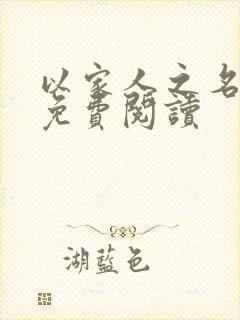 以家人之名
免費閱讀
湖藍色